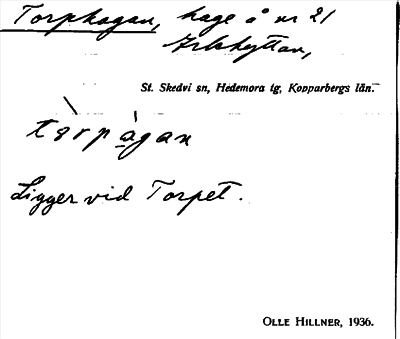 Torphagan, hage å nr 21
Arkhyttan,
St. Skedvi sn, Hedemora tg, Kopparbergs län.
tòrpàgan
Ligger vid Torpet.
OLLE HILLNER, 1936.